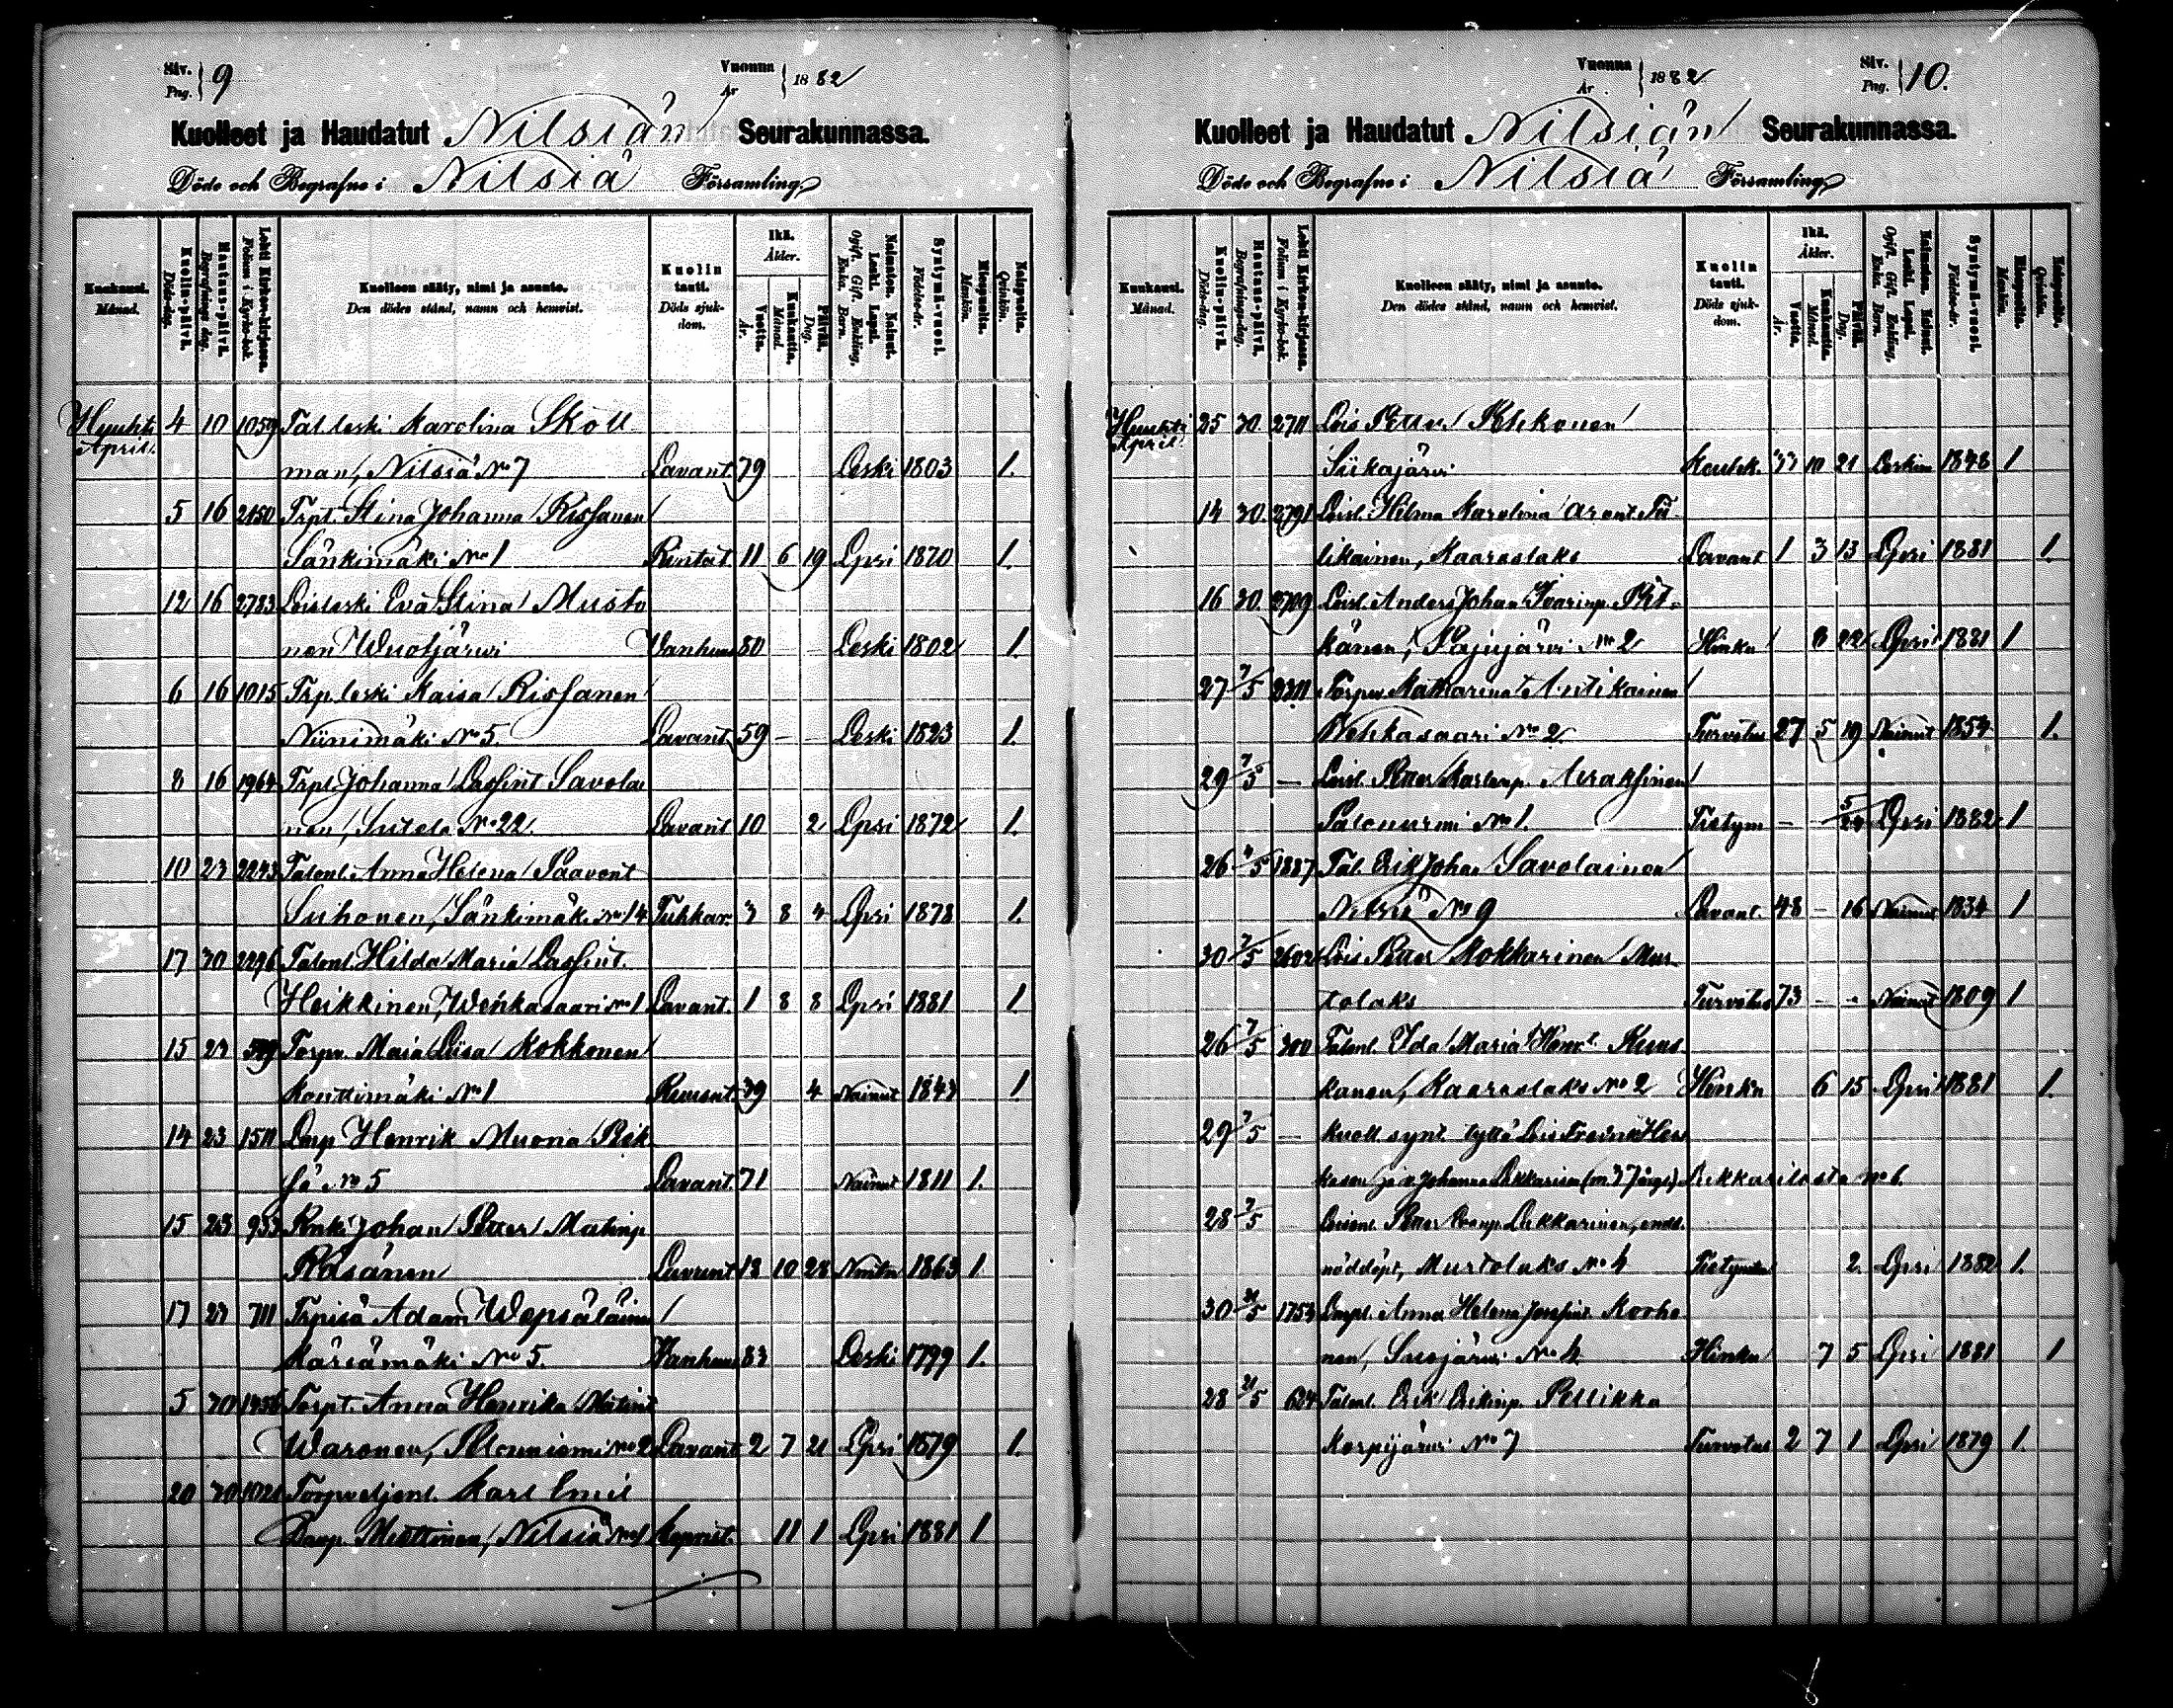 Siv. Pag. 9 Vuonna År 1882
Kuolleet ja Haudatut Nilsiän Seurakunnassa.
Döde och Begrafne i Nilsiä Församling
Kuukausi. Månad. Kuolin-päivä. Döds-dag. Hautaus-päivä. Begrafnings dag. Lehti Kirkon-kirjassa. Folium i Kyrko-bok. Kuolleen sääty, nimi ja asunto. Den dödes stånd, namn och hemvist. Kuolin tauti. Döds sjukdom. Ikä. Ålder. Vuotta. År. Kuukautta. Månad. Päivää. Dag. Naimaton. Nainut. Leski. Lapsi. Ogift. Gift. Enkling. Enka. Barn. Syntymä-vuosi. Födelse-år. Miespuolta. Mankön. Vaimopuolta. Qvinkön.
Huhti April. 4 10 1059 Tal. leski Karolina Skott
man, Nilsiä No 7 Lavant. 79 Leski 1803 1.
5 16 2150 Trpt. Stina Johanna Rissanen
Sänkimäki No 1 Rintat. 11 6 19 Lpsi 1870 1.
12 16 2783 Loisleski Eva Stina Musto
nen Wuotjärwi Vanhuus 80 Leski 1802 1.
6 16 1015 Trp leski Kaisa Rissanen
Niinimäki No 5. Lavant. 59 - - Leski 1823 1.
8 16 1964 Trpt. Johanna Lassint. Savolai
nen, Sutela No 22. Lavant. 10 2 Lpsi 1872 1.
10 23 2243 Talonl. Anna Helena Paavont
Suhonen, Sänkimäki No 14 Tuhkar. 3 8 4 Lpsi 1878 1.
17 30 2296 Talonl. Hilda Maria Lassint.
Heikkinen, Wehkasaari No 1 Lavant. 1 8 8 Lpsi 1881 1.
15 23 Torpv. Maia Liisa Kokkonen
Konttimäki No 1 39 4 Nainut 1843 1
14 23 1511 Henrik Muona
No 5 Lavant. 71 Nainut 1811 1.
15 23 953 Johan Petter Matinp
Räsänen Lavant 18 10 28 1863 1.
17 23 711 Trpisä Adam Wepsäläinen
Käriämäki No 5. Vanhuus 83 Leski 1799 1.
5 30 Torpt. Anna Henrika Matint
Waronen, No 2 Lavant. 2 7 21 Lpsi 1879 1.
20 30 Karl Emil
Miettinen, Nilsiä No 1 11 1 Lpsi 1881 1.
Vuonna År 1882 Siv. Pag. 10.
Kuolleet ja Haudatut Nilsiän Seurakunnassa.
Döde och Begrafne i Nilsiä Församling
Kuukausi. Månad. Kuolin-päivä. Döds-dag. Hautaus-päivä. Begrafnings-dag. Lehti Kirkon-kirjassa. Folium i Kyrko-bok. Kuolleen sääty, nimi ja asunto. Den dödes stånd, namn och hemvist. Kuolin tauti. Döds sjukdom. Ikä. Ålder. Vuotta. År. Kuukautta. Månad. Päivää. Dag. Naimaton. Nainut. Leski. Lapsi. Ogift. Gift. Enkling. Enka. Barn. Syntymä-vuosi. Födelse-år. Miespuolta. Mankön. Vaimopuolta. Qvinkön.
Huhti April. 25 30 2711 Lois Petter Pehkonen
Siikajärvi 33 10 21 1848 1
14 30 2791 Loisl. Hilma Karolina
likainen, Kaaraslaks Lavant 1 3 13 Lpsi 1881 1.
16 30 2729 Loisl. Anders Johan Pit-
känen, Pajujärvi No 2 Hinku 8 22 Lpsi 1881 1
27 7/5 Torpv Katharina Antikainen
Wehkasaari No 2. Turvotus 27 5 19 Nainut 1854 1.
29 7/5 - Loisl. Petter Airaksinen
Palonurmi No 1. Tietym - Lpsi 1882 1
26 7/5 1887 Tal. Erik Johan Savolainen
Nilsiä No 9 Lavant. 48 - 16 Nainut 1834 1
30 7/5 2602 Lois Petter Kokkarinen Mur-
tolaks Turvotus 73 - - Nainut 1809 1
26 7/5 300 Talonl. Ida Maria Henr.t.
kanen, Kaaraslaks No 2 Hinku 6 15 Lpsi 1881 1.
29 7/5 - kuoll. synt. tyttö Lois
kasen ja v. Johanna No 6.
28 7/5 Petter Lukkarinen,
nöddöpt, Murtolaks No 4 2. Lpsi 1882 1.
30 21/5 1753 Anna Helena Korho
nen, Suojärvi No 4 Hinku 7 5 Lpsi 1881 1
28 21/5 624 Talonl. Erik Erikinp. Pellikka
Korpijärvi No 7 Turvotus 2 7 1 Lpsi 1879 1.